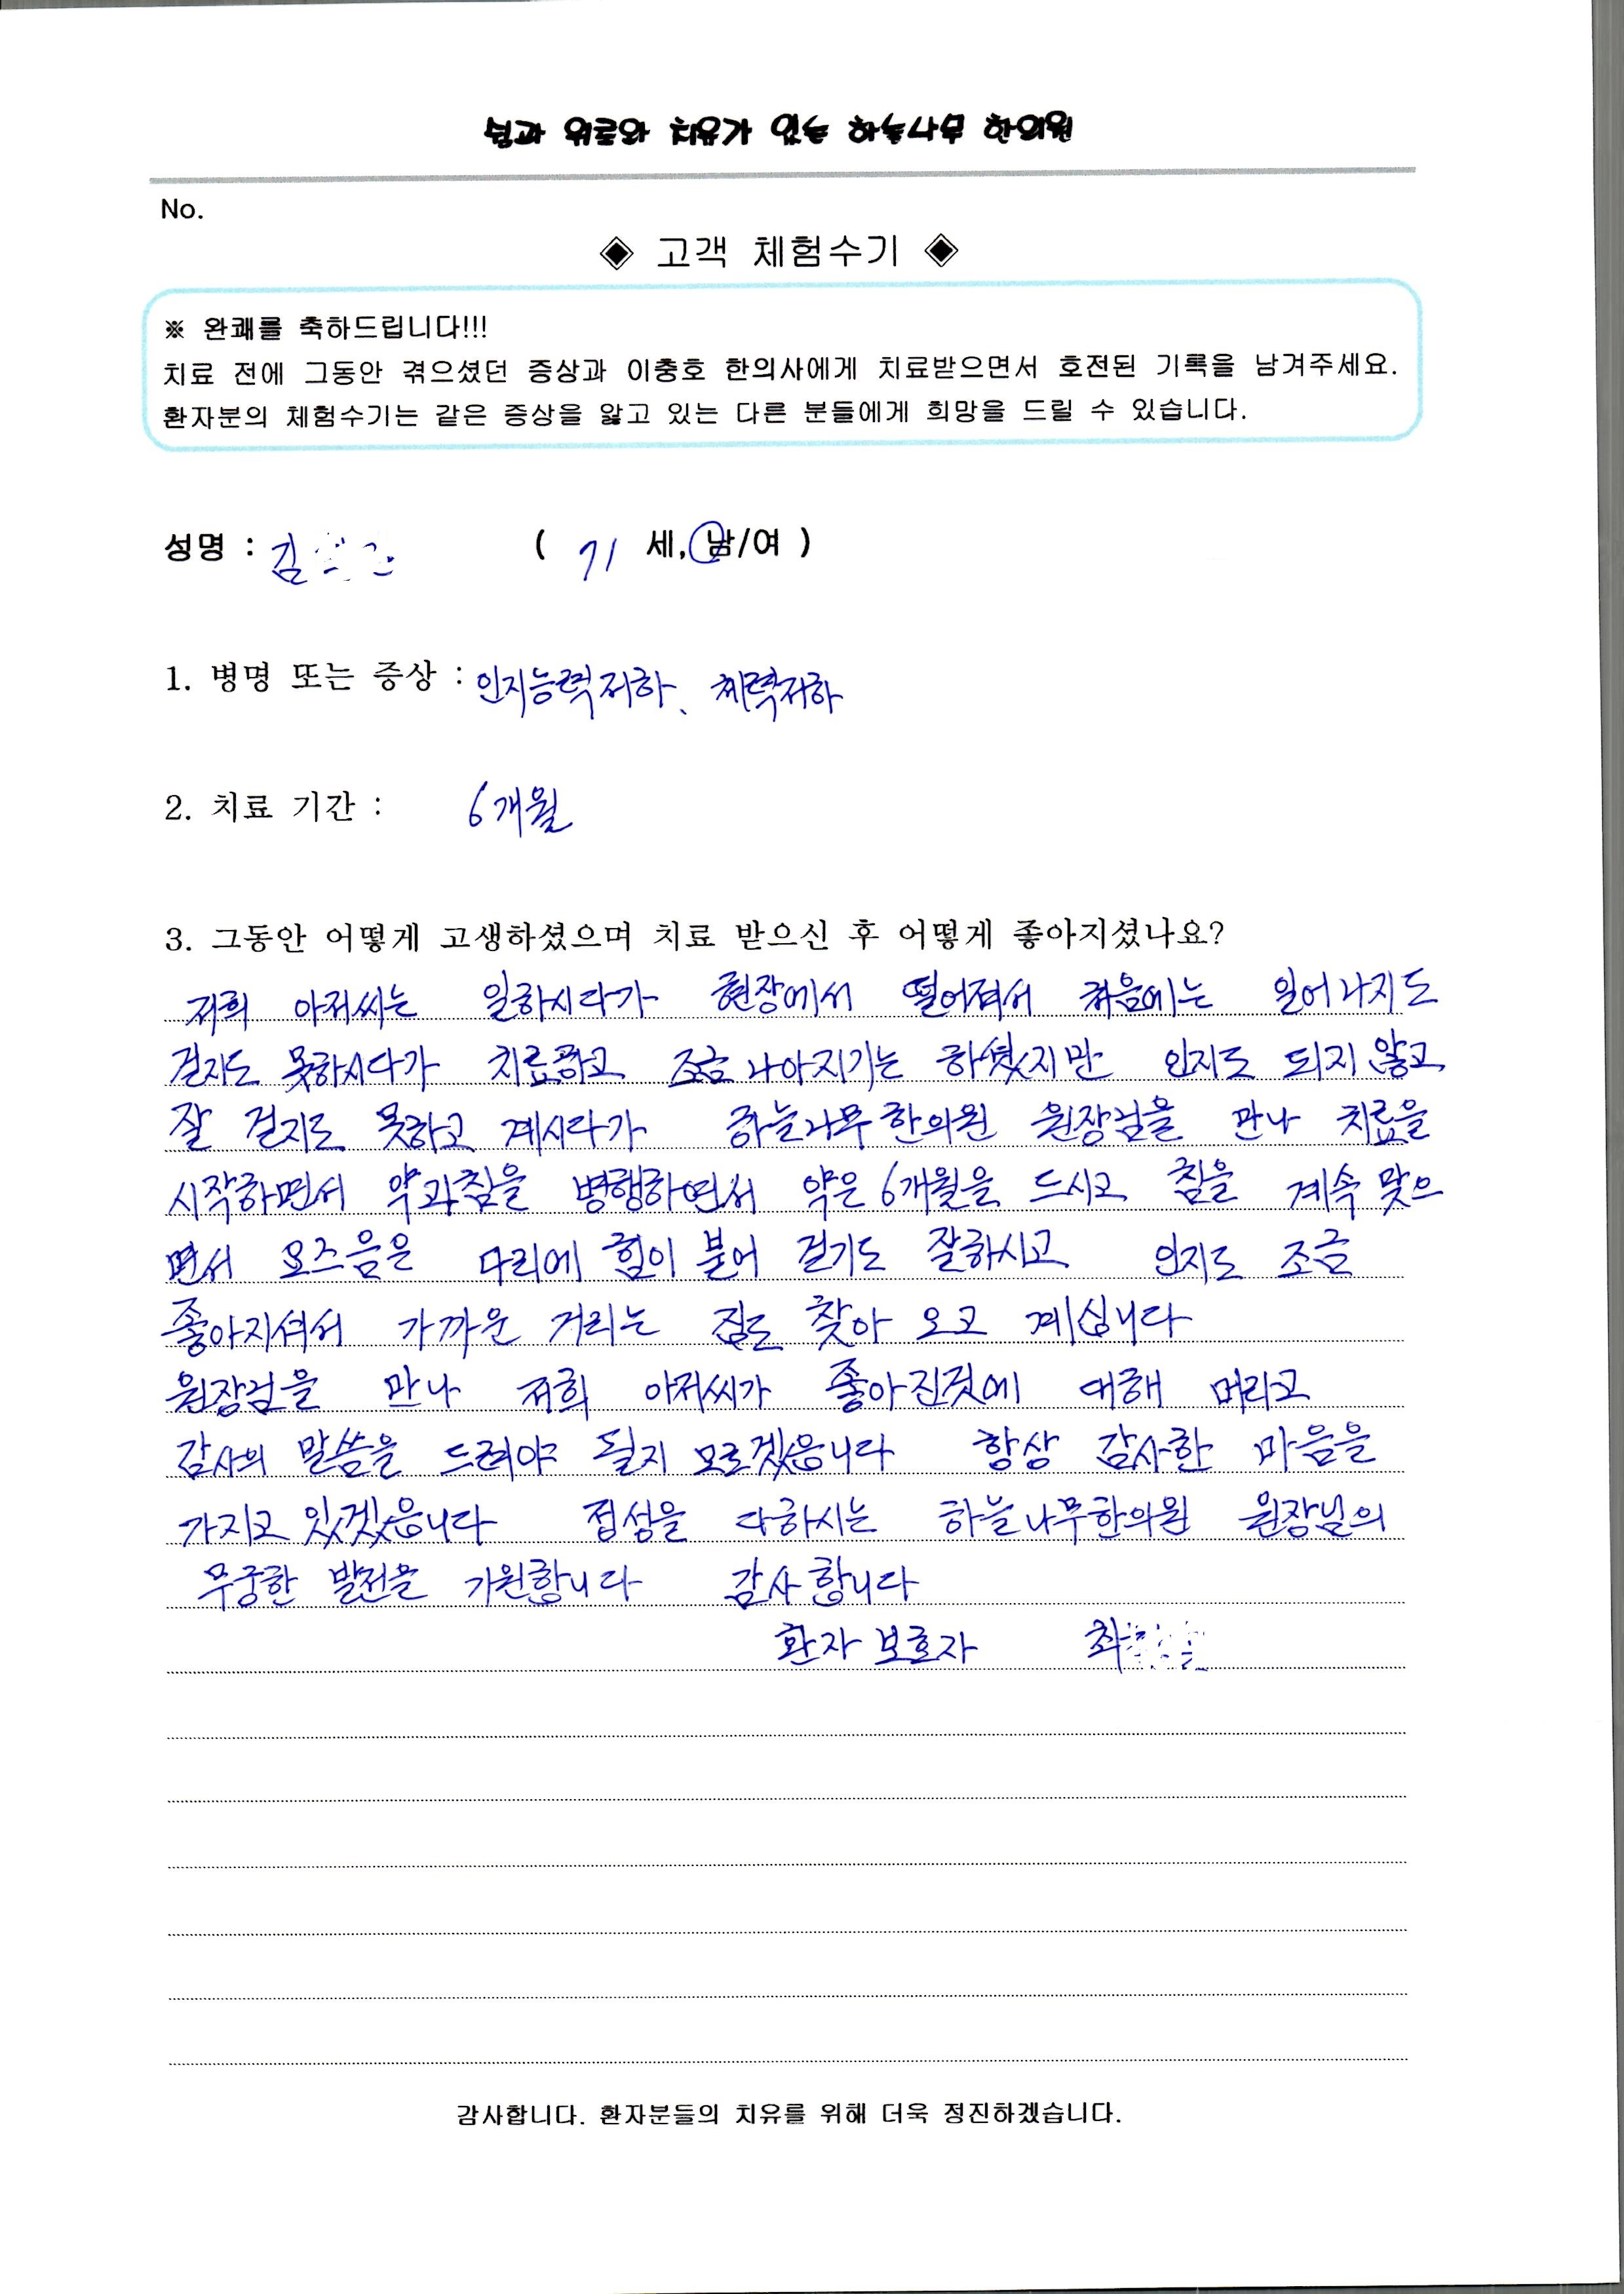 쉼과 위로와 치유가 있는 하늘나무 한의원
No.
◈ 고객 체험수기 ◈
※ 완쾌를 축하드립니다!!!
치료 전에 그동안 겪으셨던 증상과 이충호 한의사에게 치료받으면서 호전된 기록을 남겨주세요.
환자분의 체험수기는 같은 증상을 앓고 있는 다른 분들에게 희망을 드릴 수 있습니다.
성명 : 김 ( 71 세, 남/여 )
1. 병명 또는 증상 : 인지능력저하、 체력저하
2. 치료 기간 : 6개월
3. 그동안 어떻게 고생하셨으며 치료 받으신 후 어떻게 좋아지셨나요?
저희 아저씨는 일하시다가 현장에서 떨어져서 처음에는 일어나지도
걷지도 못하시다가 치료하고 조금 나아지기는 하셨지만 인지도 되지 않고
잘 걷지도 못하고 계시다가 하늘나무한의원 원장님을 만나 치료을
시작하면서 약과침을 병행하면서 약은 6개월을 드시고 침을 계속 맞으
면서 요즈음은 다리에 힘이 붙어 걷기도 잘하시고 인지도 조금
좋아지셔서 가까운 거리는 집도 찾아 오고 계십니다
원장님을 만나 저희 아저씨가 좋아진것에 대해 머라고
감사의 말씀을 드려야 될지 모르겠읍니다 항상 감사한 마음을
가지고 있겠읍니다 정성을 다하시는 하늘나무한의원 원장님의
무궁한 발전을 기원합니다 감사합니다
환자 보호자 최
감사합니다. 환자분들의 치유를 위해 더욱 정진하겠습니다.